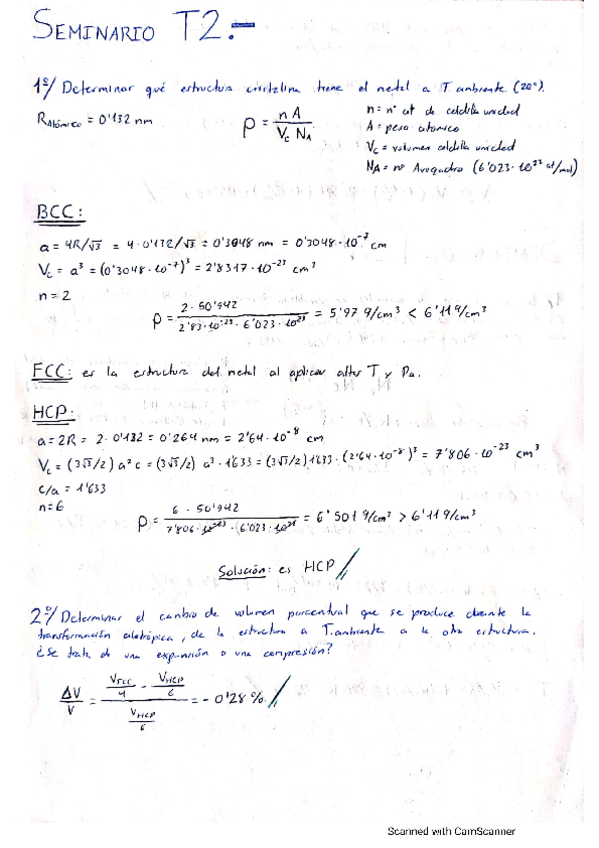 SEMINARIO T2.-
1º/ Determinar qué estructura cristalina tiene el metal a T ambiente (20º).
R Atómico = 0'132 nm
ρ = n A / Vc NA
n = nº at de celdilla unidad
A = peso atomico
Vc = volumen celdilla unidad
NA = nº Avogadro (6'023·10²³ at/mol)
BCC:
a = 4R/√3 = 4·0'132/√3 = 0'3048 nm = 0'3048·10⁻⁷ cm
Vc = a³ = (0'3048·10⁻⁷)³ = 2'8317·10⁻²³ cm³
n = 2
ρ = 2·50'942 / 2'83·10⁻²³·6'023·10²³ = 5'97 g/cm³ < 6'11 g/cm³
FCC: es la estructura del metal al aplicar altas T y Pa.
HCP:
a = 2R = 2·0'132 = 0'264 nm = 2'64·10⁻⁸ cm
Vc = (3√3/2) a²c = (3√3/2) a³·1'633 = (3√3/2) 1'633·(2'64·10⁻⁸)³ = 7'806·10⁻²³ cm³
c/a = 1'633
n = 6
ρ = 6·50'942 / 7'806·10⁻²³·(6'023·10²³ = 6'501 g/cm³ > 6'11 g/cm³
Solución: es HCP //
2º/ Determinar el cambio de volumen porcentual que se produce durante la
transformación alotrópica, de la estructura a T.ambiente a la otra estructura.
¿Se trata de una expansión o una compresión?
ΔV/V = (V FCC/4 - V HCP/6) / (V HCP/6) = - 0'28 % //
Scanned with CamScanner